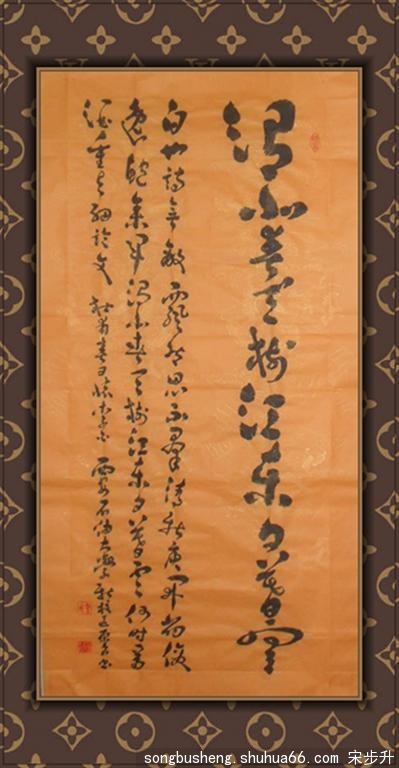 渭北春天树江东日暮云
白也诗无敌飘然思不群清新庾开府俊
逸鲍参军渭北春天树江东日暮云何时一樽
酒重与细论文 杜甫春日忆李白 西安石油大学
songbusheng.shuhua66.com 宋步升